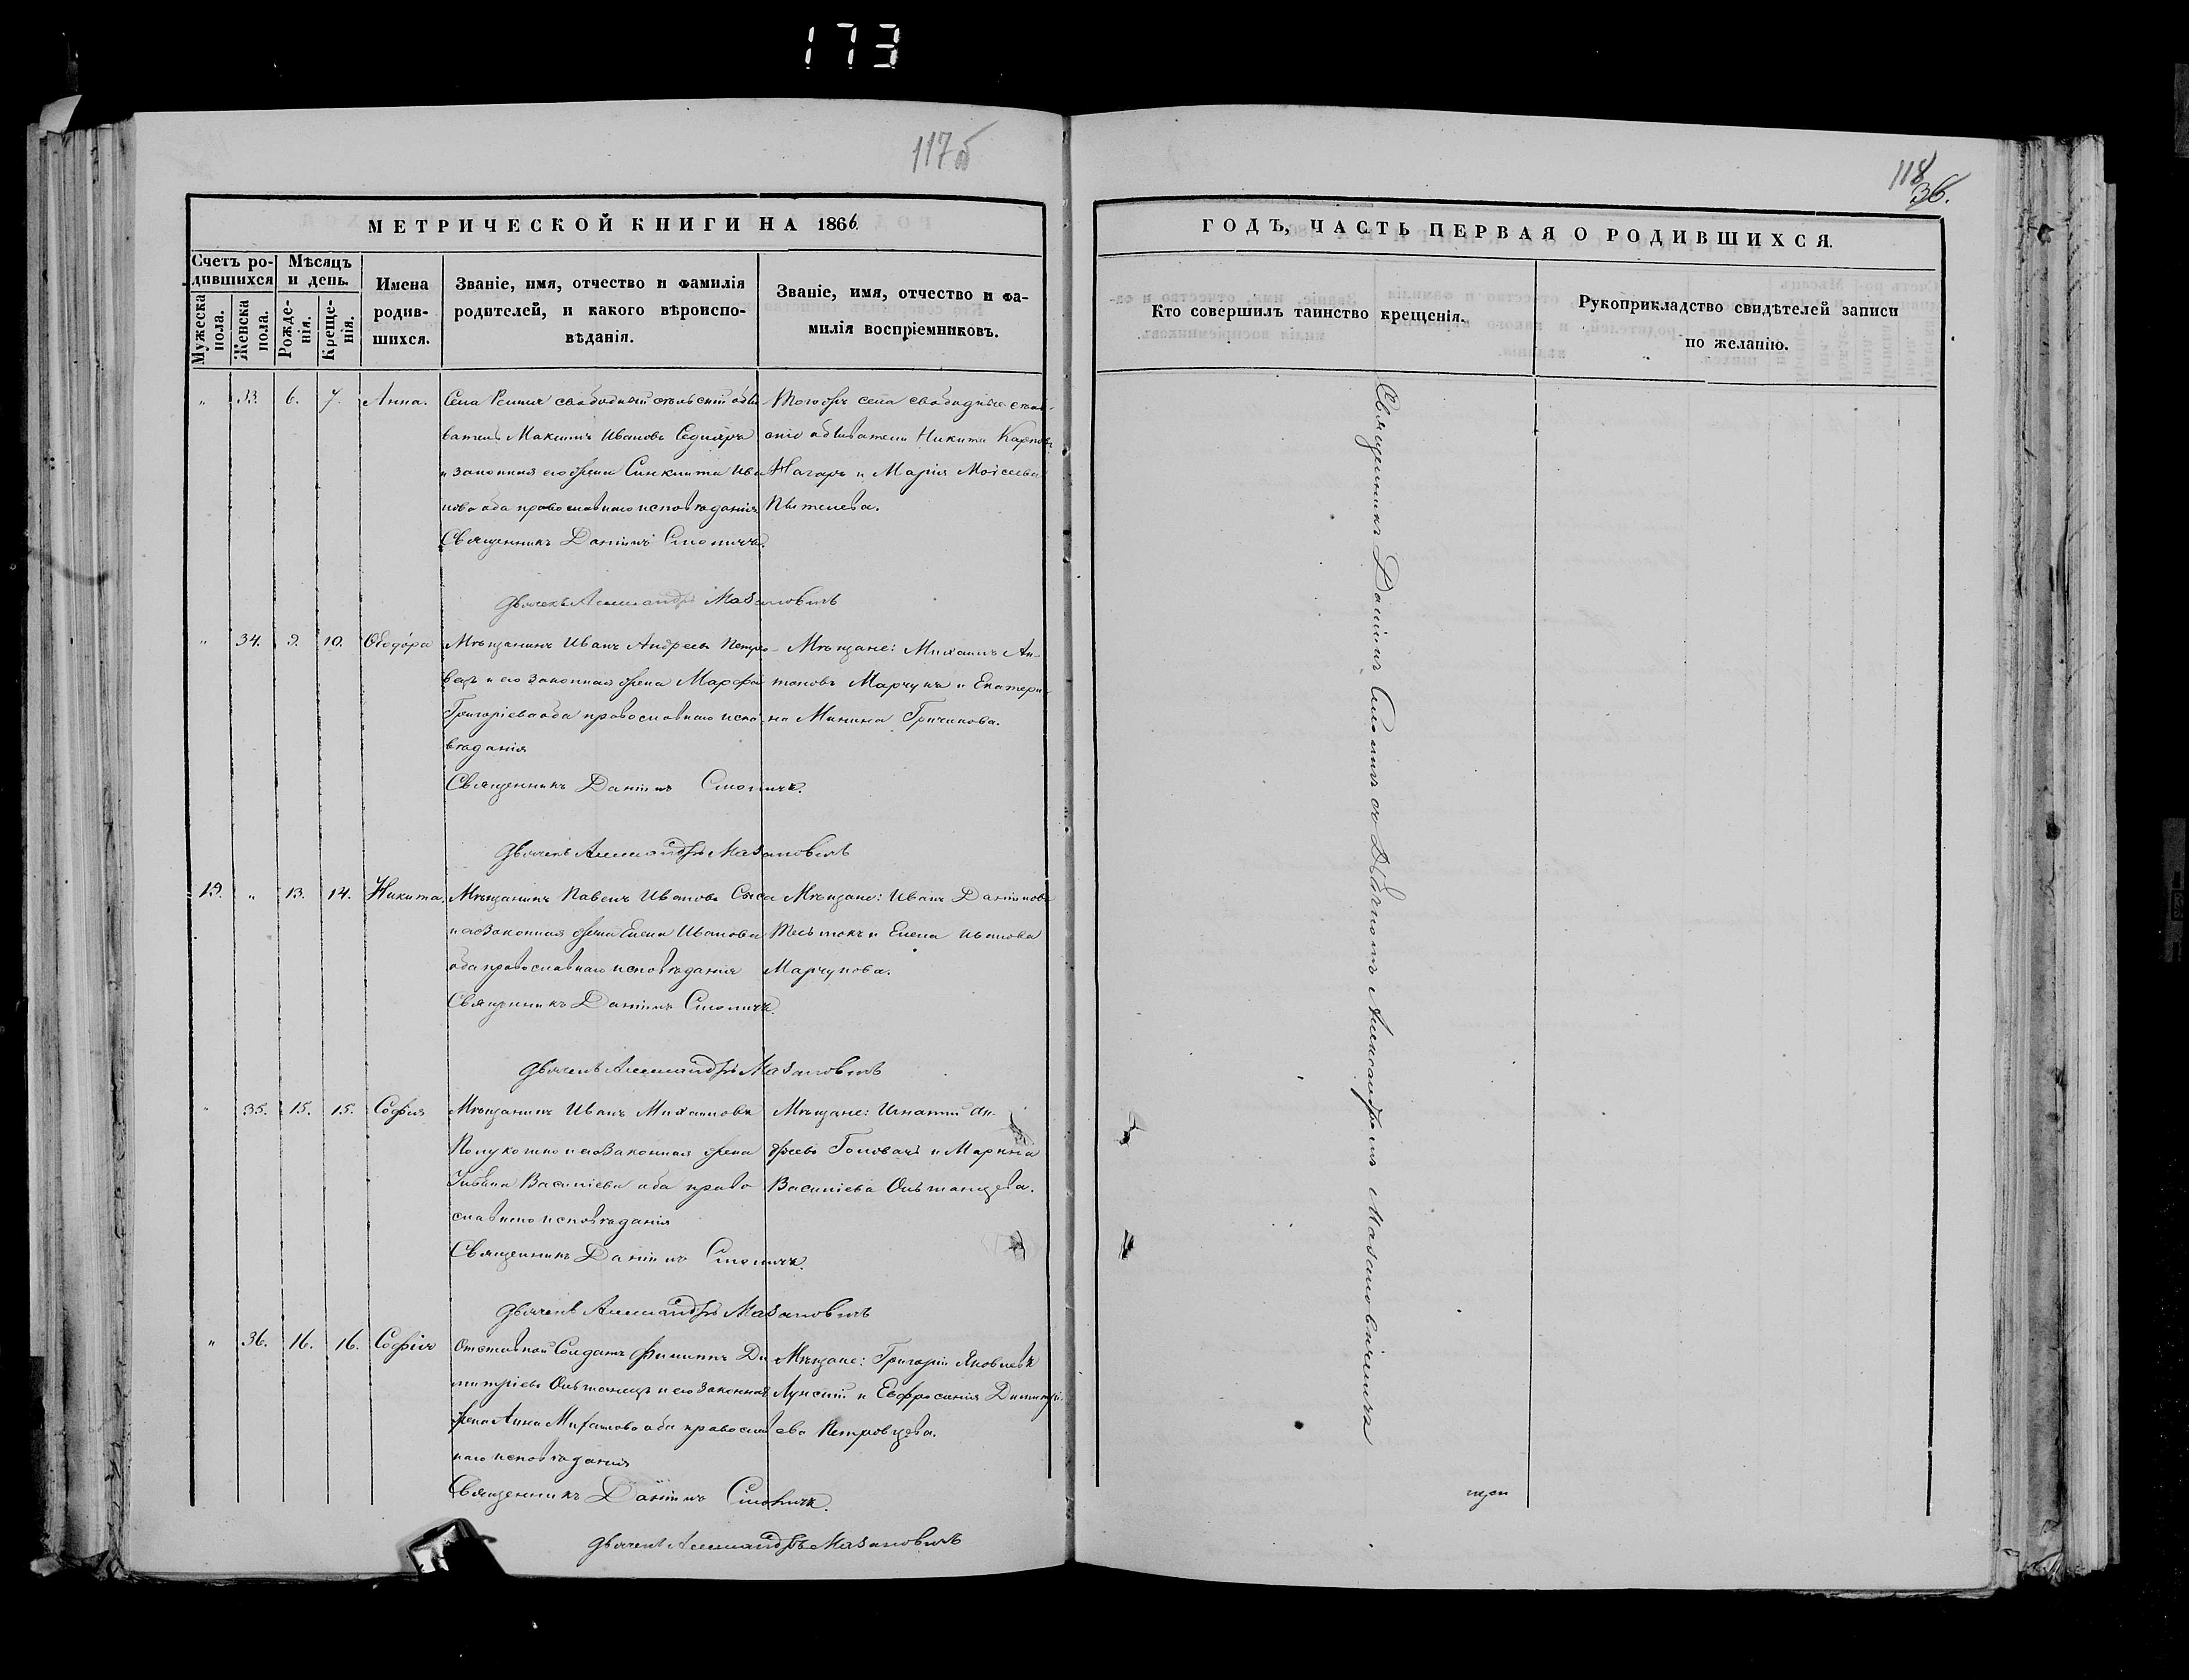 173
117об
118
36.
МЕТРИЧЕСКОЙ КНИГИ НА 1866.
Счетъ ро-
дившихся
Мѣсяцъ
и день.
Мужеска
пола.
Женска
пола.
Рожде-
нія.
Креще-
нія.
Имена
родив-
шихся.
Званіе, имя, отчество и фамилія
родителей, и какого вѣроиспо-
вѣданія.
Званіе, имя, отчество и фа-
милія воспріемниковъ.
" 33. 6. 7. Анна.
Села свободный сельскій обы-
ватель Максимъ Ивановъ
и законная его жена Синклита Ива
нова оба православнаго исповѣданія
Священникъ Даніилъ Смоличъ.
Дьячекъ Александръ Мазановичъ
Тогожъ села свободные сель-
скіе обыватели Никита Карповъ
Нагаръ и Марія Моисеева
" 34. 9. 10. Ѳеодора
Мѣщанинъ Иванъ Андреевъ Петро-
вецъ и его законная жена Марфа
Григоріева оба православнаго испо-
вѣданія
Священникъ Даніилъ Смоличъ.
Дьячекъ Александръ Мазановичъ
Мѣщане: Михаилъ Ан-
тоновъ Марчукъ и Екатери-
на Минина Гричинова.
19. " 13. 14. Никита.
Мѣщанинъ Павелъ Ивановъ
и его законная жена Елена Иванова
оба православнаго исповѣданія
Священникъ Даніилъ Смоличъ.
Дьячекъ Александръ Мазановичъ
Мѣщане: Иванъ Даниловъ
и Елена Иванова
Марчукова.
" 35. 15. 15. Софія
Мѣщанинъ Иванъ Михаиловъ
Полукошко и его законная жена
Василіева оба право
славнаго исповѣданія
Священникъ Даніилъ Смоличъ.
Дьячекъ Александръ Мазановичъ
Мѣщане: Игнатій Ан-
дреевъ Головачъ и Марина
Василіева Ольшанцева.
" 36. 16. 16. Софія
Отставной Солдатъ Филиппъ Ди
митріевъ Ольшанецъ и его законная
жена Анна Михаилова оба православ
наго исповѣданія
Священникъ Даніилъ Смоличъ.
Дьячекъ Александръ Мазановичъ
Мѣщане: Григорій Яковлевъ
Лукскій и Евфросинія Димитрі-
ева Петровцева.
ГОДЪ, ЧАСТЬ ПЕРВАЯ О РОДИВШИХСЯ.
Кто совершилъ таинство крещенія.
Рукоприкладство свидѣтелей записи
по желанію.
Священникъ Даніилъ Смоличъ съ Дьячкомъ Александромъ Мазановичемъ